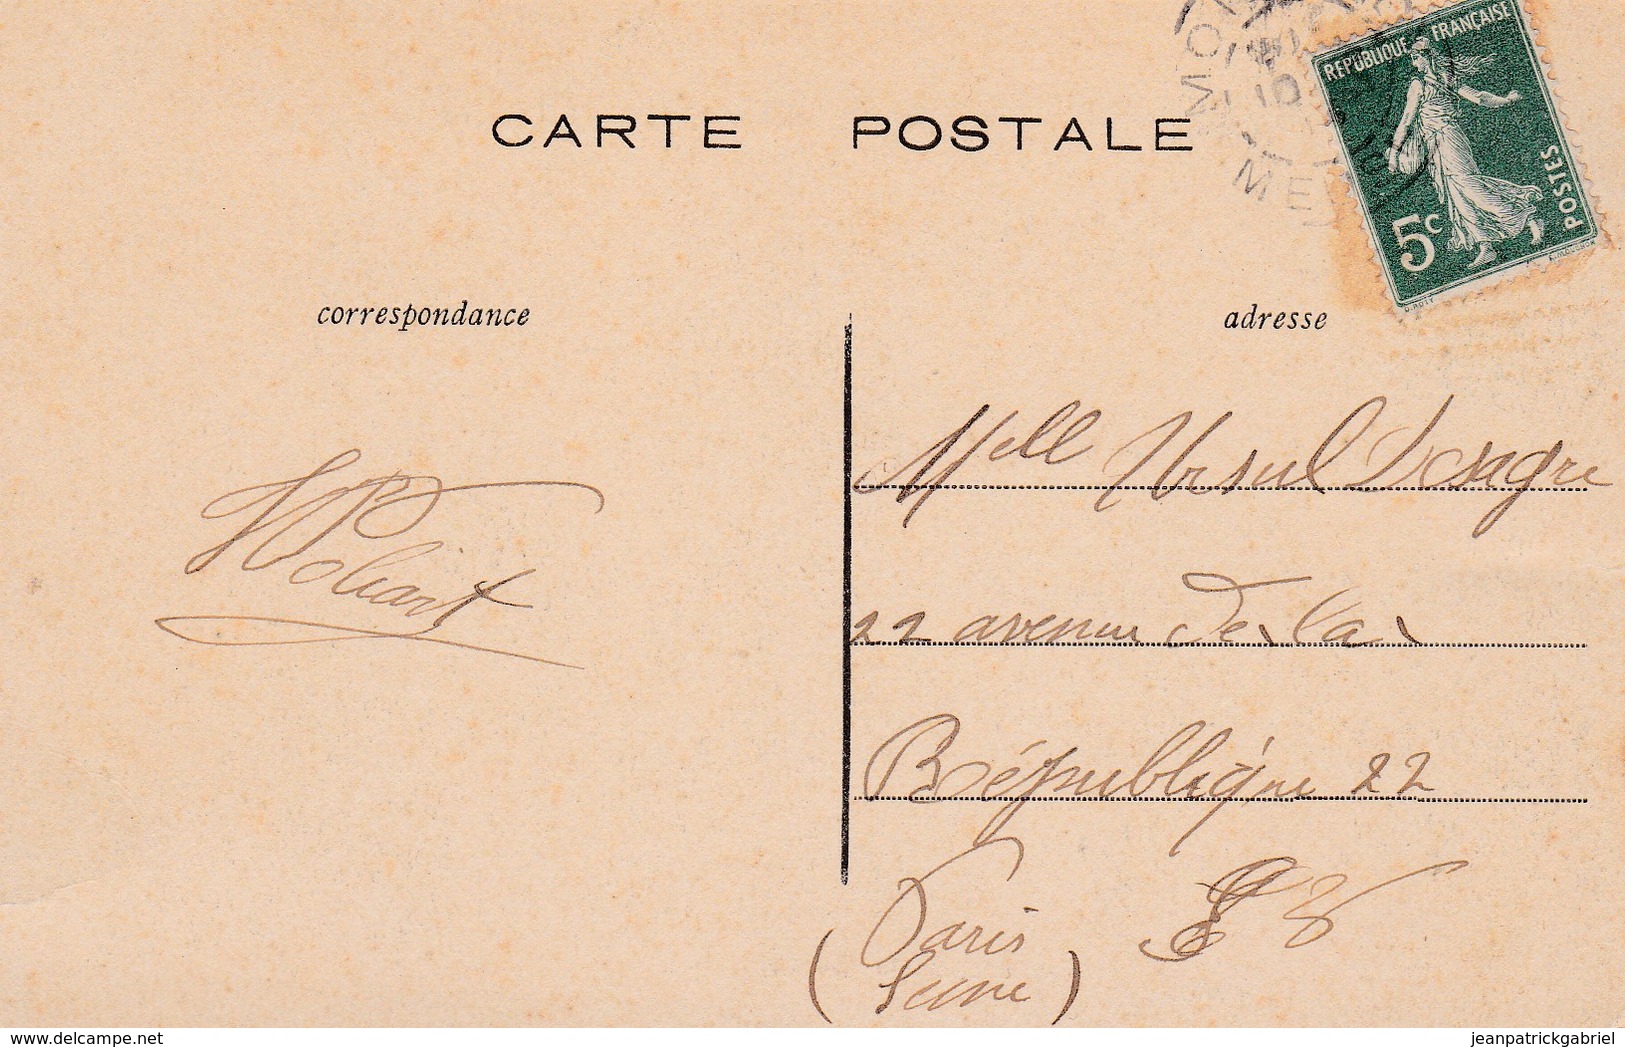 CARTE POSTALE
RÉPUBLIQUE FRANÇAISE
POSTES
5c
correspondance
adresse
Mell Ursul
22 avenue de la
République 22
Paris
(Seine)
delcampe.net
jeanpatrickgabriel